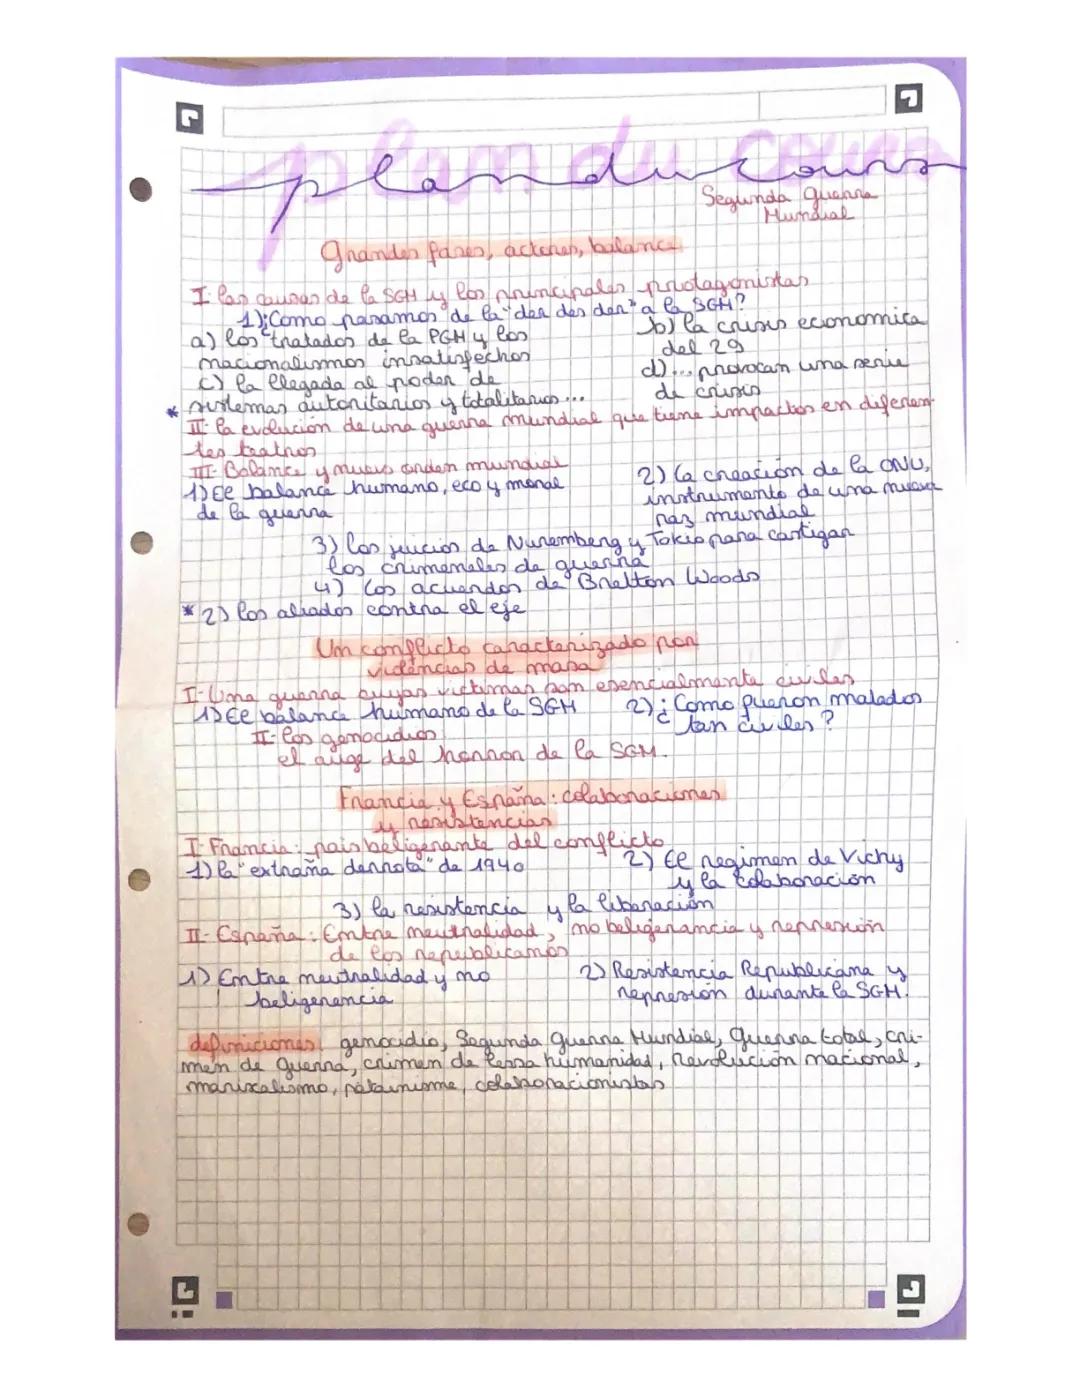 plan du cours
Segunda guerra
Mundial
Grandes fases, actores, balance
I- las causas de la SGM y los principales protagonistas
1) ¿Como pasamos de la "der des der" a la SGM?
a) los tratados de la PGM y los
nacionalismos insatisfechos
b) la crisis economica
del 29
c) la llegada al poder de
sistemas autoritarios y totalitarios...
d) ... provocan una serie
de crisis
*
II- la evolución de una guerra mundial que tiene impactos en diferen-
tes teatros
III- Balance y nuevo orden mundial
1) El balance humano, eco y moral
de la guerra
2) la creación de la ONU,
instrumento de una nueva
paz mundial
3) los juicios de Nuremberg y Tokio para castigar
los criminales de guerra
4) los acuerdos de Bretton Woods
* 2) los aliados contra el eje
Un conflicto caracterizado por
violencias de masa
I- Una guerra cuyas victimas son esencialmente civiles
1) El balance humano de la SGM
2) ¿Como fueron matados
tan civiles?
II- los genocidios
el auge del horror de la SGM.
Francia y España: colaboraciones
y resistencias
I- Francia: pais beligerante del conflicto
1) la "extraña derrota" de 1940
2) El regimen de Vichy
y la colaboración
3) la resistencia y la liberación
II- España: Entre neutralidad, no beligerancia y represión
de los republicanos
1) Entre neutralidad y no
beligerencia
2) Resistencia Republicana y
represión durante la SGM.
definiciones genocidio, Segunda guerra Mundial, Guerra total, cri-
men de guerra, crimen de lessa humanidad, Revolución nacional,
mariscalismo, pétainisme, colaboracionistas